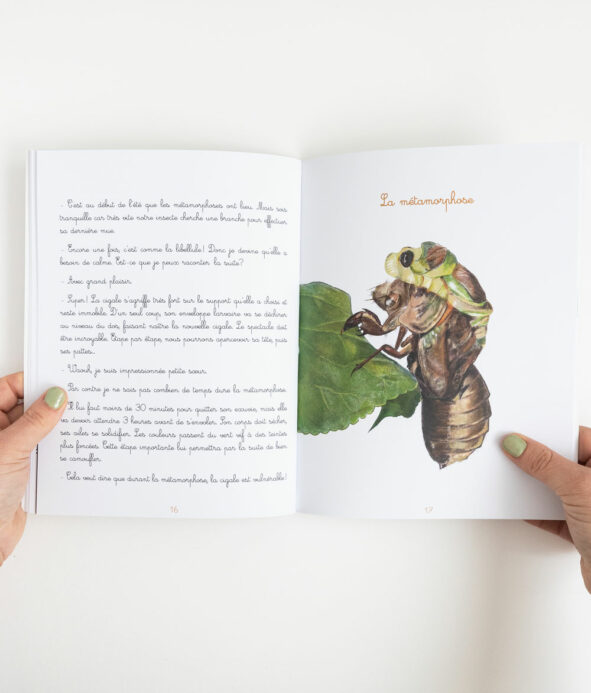 - C'est au début de l'été que les métamorphoses ont lieu. Mais sois
tranquille car très vite notre insecte cherche une branche pour effectuer
sa dernière mue.
- Encore une fois, c'est comme la libellule ! Donc je devine qu'elle a
besoin de calme. Est-ce que je peux raconter la suite ?
- Avec grand plaisir.
- Super ! La cigale s'agriffe très fort sur le support qu'elle a choisi et
reste immobile. D'un seul coup, son enveloppe larvaire va se déchirer
au niveau du dos, faisant naître la nouvelle cigale. Le spectacle doit
être incroyable. Étape par étape, nous pourrons apercevoir sa tête, puis
ses pattes...
- Waouh, je suis impressionnée petite sœur.
- Par contre je ne sais pas combien de temps dure la métamorphose.
- Il lui faut moins de 30 minutes pour quitter son exuvie, mais elle
va devoir attendre 3 heures avant de s'envoler. Son corps doit sécher,
ses ailes se solidifier. Les couleurs passent du vert vif à des teintes
plus foncées. Cette étape importante lui permettra par la suite de bien
se camoufler.
- Cela veut dire que durant la métamorphose, la cigale est vulnérable !
16
La métamorphose
17